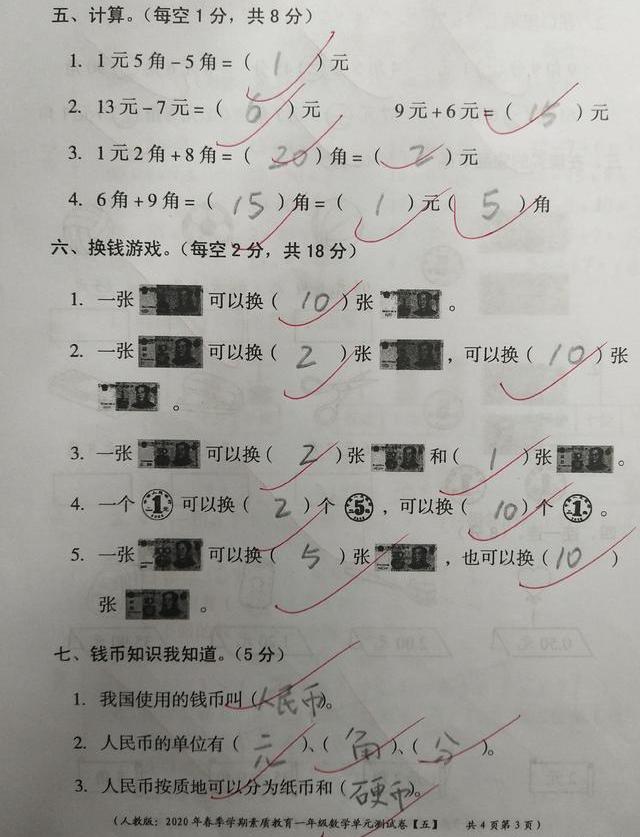 五、计算。(每空1分，共8分)
1. 1元5角-5角=( 1 )元
2. 13元-7元=( 6 )元 9元+6元=( 15 )元
3. 1元2角+8角=( 20 )角=( 2 )元
4. 6角+9角=( 15 )角=( 1 )元( 5 )角
六、换钱游戏。(每空2分，共18分)
1. 一张 可以换( 10 )张 。
2. 一张 可以换( 2 )张 ，可以换( 10 )张
。
3. 一张 可以换( 2 )张 和( 1 )张 。
4. 一个 1 可以换( 2 )个 5 ，可以换( 10 )个 1 。
5. 一张 可以换( 5 )张 ，也可以换( 10 )
张 。
七、钱币知识我知道。(5分)
1. 我国使用的钱币叫(人民币)。
2. 人民币的单位有( 元 )、( 角 )、( 分 )。
3. 人民币按质地可以分为纸币和(硬币)。
(人教版：2020年春季学期素质教育一年级数学单元测试卷【五】 共4页第3页)